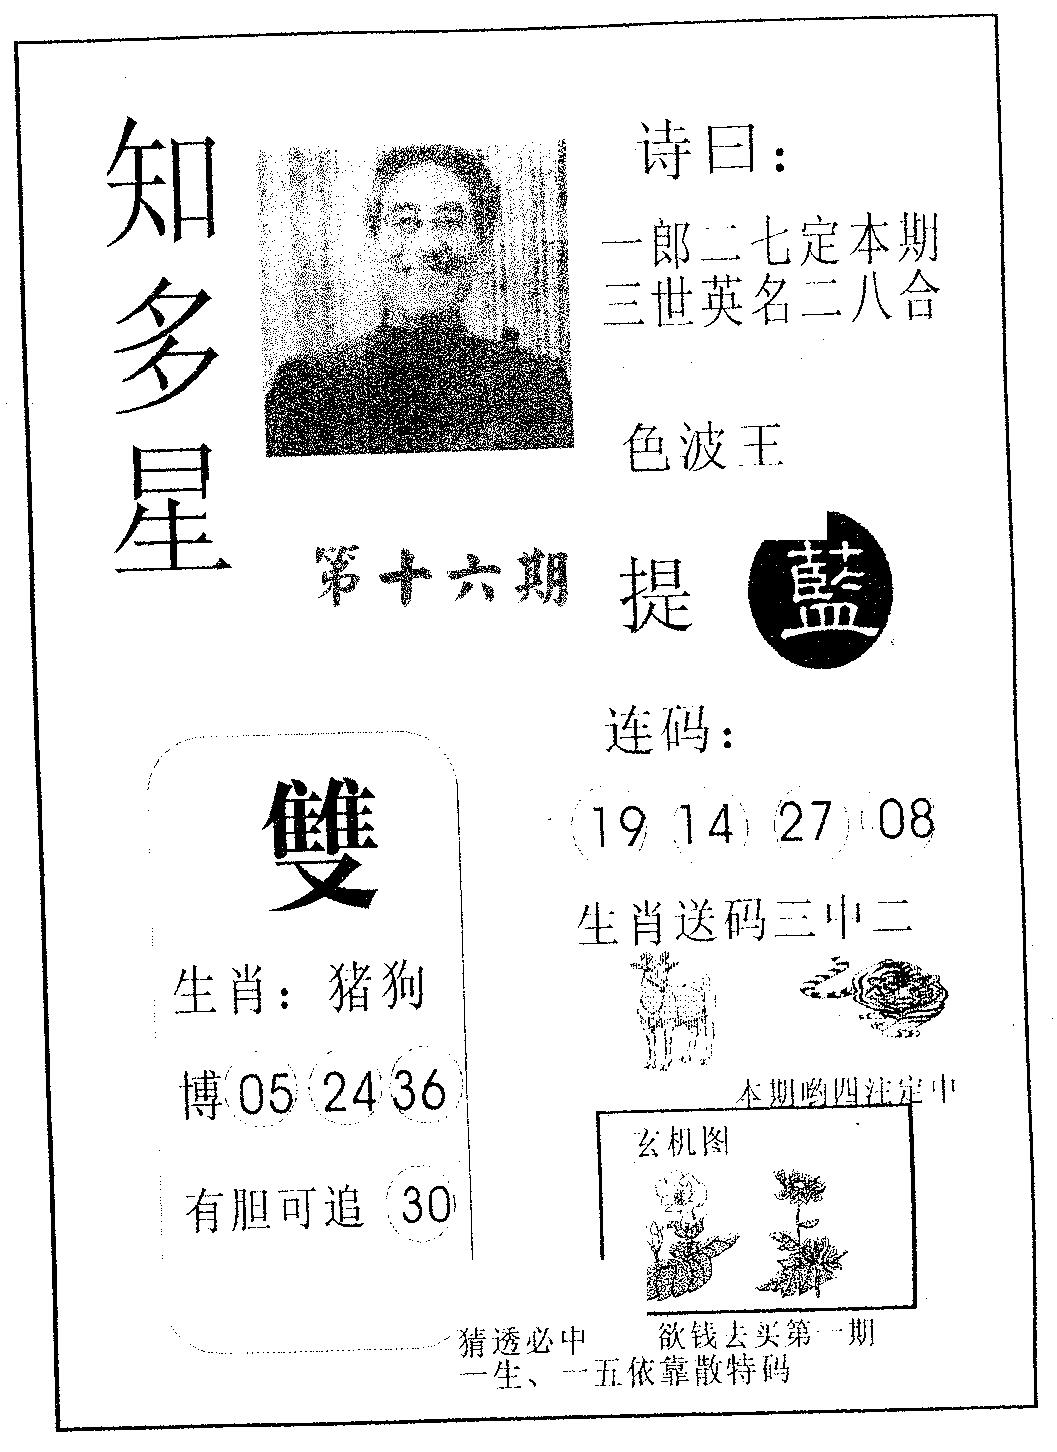 知多星
诗曰：
一郎二七定本期
三世英名二八合
色波王
第十六期
提 藍
连码：
19 14 27 08
雙
生肖送码三中二
生肖：猪狗
博 05 24 36
本期哟四注定中
玄机图
有胆可追 30
猜透必中
欲钱去买第一期
一生、一五依靠散特码